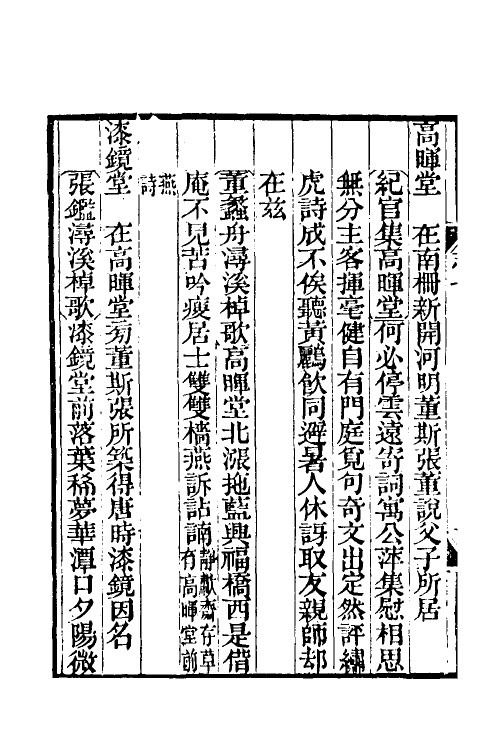 高暉堂　在南柵新開河明董斯張董說父子所居
紀官集高暉堂何必停雲遠寄詞寓公萍集慰相思
無分主客揮毫健自有門庭覓句奇文出定然評繡
虎詩成不俟聽黃鸝飲同避暑人休訝取友親師却
在茲
董蠡舟潯溪棹歌高暉堂北漲拖藍興福橋西是偕
庵不見苦吟瘦居士雙雙檣燕訴詁諵靜獻齋存草有高暉堂前
燕詩
漆鏡堂　在高暉堂旁董斯張所築得唐時漆鏡因名
張鑑潯溪棹歌漆鏡堂前落葉稀夢華潭口夕陽微